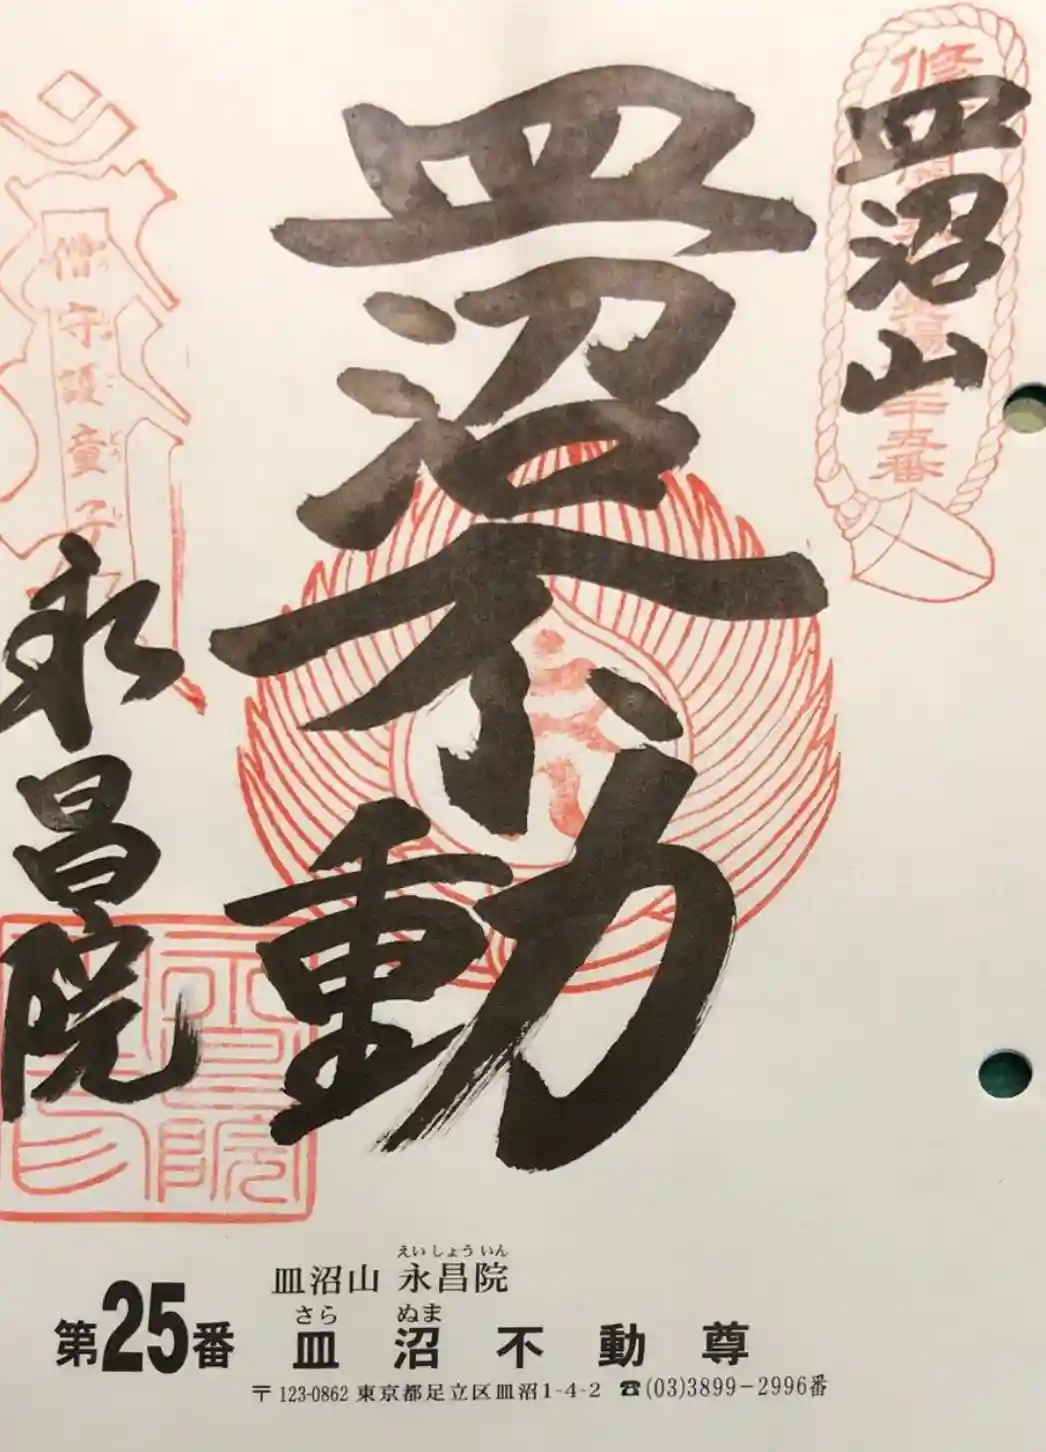 皿沼山
皿沼不動
永昌院
僧守護童子
五番
えいしょういん
皿沼山 永昌院
さら ぬま
第25番 皿沼不動尊
〒123-0862 東京都足立区皿沼1-4-2 ☎(03)3899-2996番